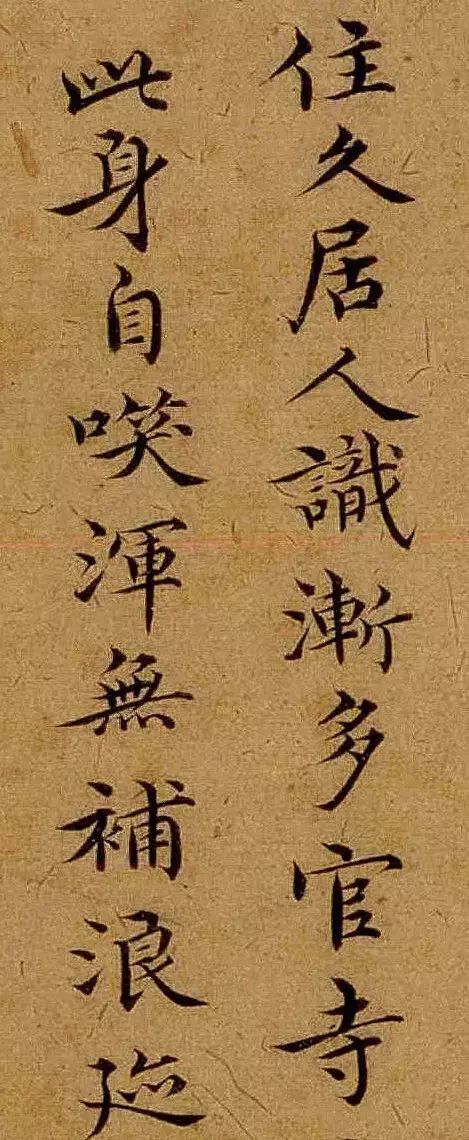 住久居人識漸多官寺
此身自㗛渾無補浪迹